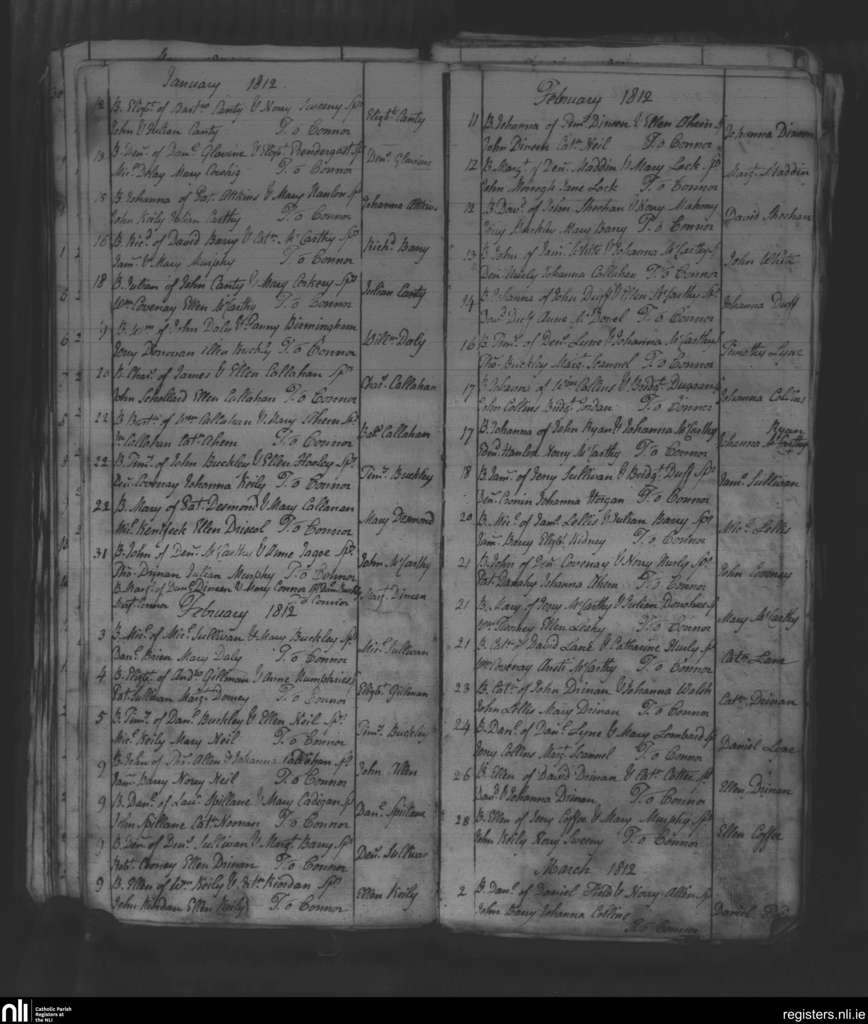 January 1812
12 B. Elizth. of Bartw. Canty & Nory Sweeny Sps.
John & Julian Canty T. O Connor
Elizth. Canty
13 B. Dens. of Danl. Glavine & Elizth. Prendergast Sps.
Micl. Daly Mary T. O Connor
Denis. Glavine
15 B. Johanna of Pat. Attkins & Mary Hanlon Sps.
John Keily Ellen Carthy T. O Connor
Johanna Attkins
16 B. Richd. of David Barry & Cathe. McCarthy Sps.
Jams. & Mary Murphy T. O Connor
Richd. Barry
18 B. Julian of John Canty & Mary Sps.
Wm. Covenay Ellen McCarthy T. O Connor
Julian Canty
19 B. Wm. of John Daly & Fanny Birmingham
Jerry Donovan Ellen T. O Connor
Willm. Daly
20 B. Chas. of James & Ellen Callahan Sps.
John Schollard Ellen Callahan T. O Connor
Chas. Callahan
22 B. Bart. of Wm. Callahan & Mary Ahern Sps.
Wm. Callahan Cath. Ahern T. O Connor
Bat. Callaham
22 B. Timy. of John Buckley & Ellen Hooley Sps.
Covenay Johanna Keily T. O Connor
Timy. Buckley
22 B. Mary of Pat. Desmond & Mary Callanan
Micl. Kenifeck Ellen Driscol T. O Connor
Mary Desmond
31 B. John of Denis. McCarthy & Anne Jagoe Sps.
Thos. Drinan Julian Murphy T. O Connor
John McCarthy
B. Margt. of Danl. Dineen & Mary Connor
Connor T. O Connor
Margt. Dineen
February 1812
3 B. Micl. of Micl. Sullivan & Mary Buckley Sps.
Danl. Brien Mary Daly T. O Connor
Micl. Sullivan
4 B. Elizth. of Andw. Gillman & Anne Humphries Sps.
Pat Sullivan Margt. Downey T. O Connor
Elizth. Gillman
5 B. Timy. of Danl. Buckley & Ellen Neil Sps.
Micl. Keily Mary Neil T. O Connor
Timy. Buckley
9 B. John of Thos. Allen & Johanna Callahan Sps.
Jams. Barry Norey Neil T. O Connor
John Allen
9 B. Danl. of Laur. Spillane & Mary Cadigan Sps.
John Spillane Cath. Noonan T. O Connor
Danl. Spillane
9 B. Denis. of Denis. Sullivan & Margt. Barry Sps.
Robt. Ellen Drinan T. O Connor
Denis. Sullivan
9 B. Ellen of Wm. Keily & Riordan Sps.
John Riordan Ellen Keily T. O Connor
Ellen Keily
February 1812
11 B. Johanna of Timy. Dineen & Ellen Ahern Sps.
John Dineen Cathe. Neil T. O Connor
Johanna Dineen
12 B. Margt. of Denis. Maddin & Mary Lock Sps.
John Jane Lock T. O Connor
Margt. Maddin
12 B. Davd. of John Sheehan & Nory Mahony
Jerry Buckley Mary Barry T. O Connor
David Sheehan
13 B. John of Jams. White & Johanna McCarthy Sps.
Denis Johanna Callahan T. O Connor
John White
14 B. Johanna of John Duff & Ellen McCarthy Sps.
Davd. Duff Anne McDonel T. O Connor
Johanna Duff
16 B. Timy. of Denis. Lyne & Johanna McCarthy Sps.
Thos. Buckley Margt. Scannel T. O Connor
Timothy Lyne
17 B. Johanna of Willm. Collins & Bridgt. Sps.
John Collins Bridgt. Jordan T. O Connor
Johanna Collins
17 B. Johanna of John Ryan & Johanna McCarthy
Edmd. Hanlon Nory McCarthy T. O Connor
Ryan
Johanna McCarthy
18 B. Jams. of Jerry Sullivan & Bridgt. Duff Sps.
Denis. Cronin Johanna Horgan T. O Connor
Jams. Sullivan
20 B. Micl. of Jams. Lolles & Julian Barry Sps.
Jams. Barry Elizth. Kidney T. O Connor
Micl. Lolles
21 B. John of Denis. Covenay & Nory Hurly Sps.
Pat. Johanna Ahern T. O Connor
John Covenay
21 B. Mary of Jerry McCarthy & Julian Donohue Sps.
Wm. Ellen Leahy T. O Connor
Mary McCarthy
21 B. Cathe. of David Lane & Catharine Hurly Sps.
Wm. Covenay McCarthy T. O Connor
Cathe. Lane
23 B. Cathe. of John Drinan & Johanna Walsh
John Lolles Mary Drinan T. O Connor
Cathe. Drinan
24 B. Danl. of Danl. Lyne & Mary Lombard Sps.
Jerry Collins Margt. Scannel T. O Connor
Daniel Lyne
26 B. Ellen of David Drinan & Cathe. Cotter Sps.
Davd. & Johanna Drinan T. O Connor
Ellen Drinan
28 B. Ellen of Jerry Coffee & Mary Murphy Sps.
John Keily Nory Sweeny T. O Connor
Ellen Coffee
March 1812
2 B. Danl. of Daniel Field & Nory Allen Sps.
John Barry Johanna Collins
T. O Connor
Daniel
nli
Catholic Parish
Registers at
the NLI
registers.nli.ie